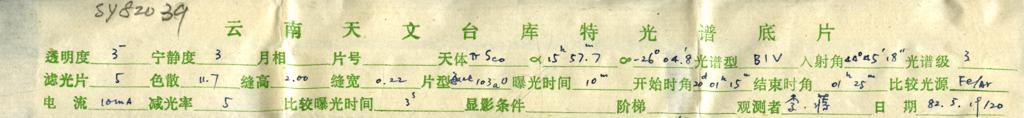 SY82039
云南天文台库特光谱底片
透明度 3 宁静度 3 月相 片号 天体 π Sco α 15h 57.7m α -26° 04.'8 光谱型 B1V 入射角 44° 45' 18" 光谱级 3
滤光片 5 色散 11.7 缝高 2.00 缝宽 0.22 片型 103aO 曝光时间 10m 开始时角 01h 15m 结束时角 01h 25m 比较光源 Fe/Ar
电流 10mA 减光率 5 比较曝光时间 3s 显影条件 阶梯 观测者 李.蒋 日期 82.5.19/20